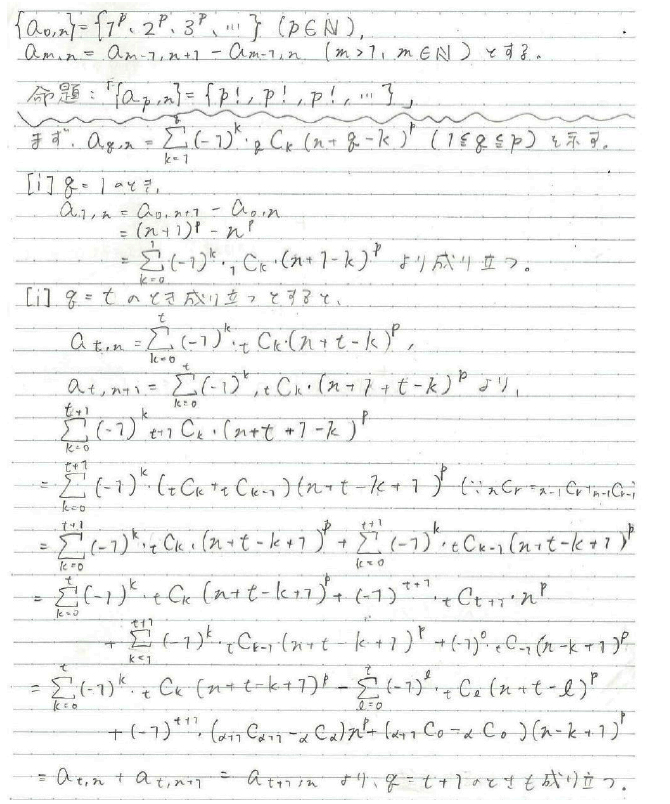 {a₀,ₙ}={1ᵖ、2ᵖ、3ᵖ、…} (p∈ℕ),
aₘ,ₙ = aₘ₋₁,ₙ₊₁ − aₘ₋₁,ₙ (m>1, m∈ℕ) とする。
命題:「{aₚ,ₙ}={p!, p!, p!, …}」
まず、a_{q,n} = Σ_{k=1} (-1)^k・_qC_k (n+q-k)^p (1≦q≦p) を示す。
[i] q=1のとき,
a_{1,n} = a_{0,n+1} − a_{0,n}
= (n+1)^p − n^p
= Σ_{k=0}^{1} (-1)^k・₁C_k・(n+1-k)^p より成り立つ。
[i] q=t のとき成り立つとすると、
a_{t,n} = Σ_{k=0}^{t} (-1)^k・_tC_k・(n+t-k)^p,
a_{t,n+1} = Σ_{k=0}^{t} (-1)^k・_tC_k・(n+1+t-k)^p より,
Σ_{k=0}^{t+1} (-1)^k _{t+1}C_k・(n+t+1-k)^p
= Σ_{k=0}^{t+1} (-1)^k・(_tC_k + _tC_{k-1})(n+t-k+1)^p (∵ _nC_r = _{n-1}C_r + _{n-1}C_{r-1}
= Σ_{k=0}^{t+1} (-1)^k・_tC_k・(n+t-k+1)^p + Σ_{k=0}^{t+1} (-1)^k・_tC_{k-1}(n+t-k+1)^p
= Σ_{k=0}^{t} (-1)^k・_tC_k (n+t-k+1)^p + (-1)^{t+1}・_tC_{t+1}・n^p
+ Σ_{k=1}^{t+1} (-1)^k・_tC_{k-1}・(n+t-k+1)^p + (-1)^0・_tC_{-1}(n-k+1)^p
= Σ_{k=0}^{t} (-1)^k・_tC_k (n+t-k+1)^p − Σ_{l=0}^{t} (-1)^l・_tC_l (n+t-l)^p
+ (-1)^{t+1}・(_{α+1}C_{α+1} − _αC_α)n^p + (_{α+1}C_0 − _αC_0)(n-k+1)^p
= a_{t,n} + a_{t,n+1} = a_{t+1,n} より、q=t+1のときも成り立つ。